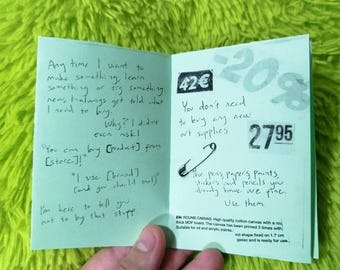 Any time I want to
make something, learn
something or try something
new, I always get told what
I need to buy.
Why? I didn't
even ask!
"You can buy [product] from
[store]!"
"I use [brand]
(and you should too)"
I'm here to tell you
not to buy that stuff
-20%
42€
You don't need
to buy any new
art supplies
27 95
The pens, papers, paints,
stickers and pencils you
already have are fine.
Use them
EN: ROUND CANVAS. High quality cotton canvas with a
thick MDF board. The canvas has been primed 3 times with
Suitable for oil and acrylic paints.
not shape
on 1.7 cm
gesso and is ready for use